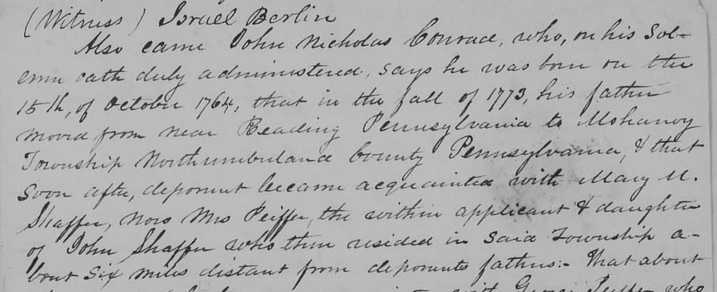 (Witness) Israel Berlin
Also came John Nicholas Conrad, who, on his Sol-
emn oath duly administered, says he was born on the
15th, of October 1764, that in the fall of 1773, his father
moved from near Reading Pennsylvania to Mohanoy
Township Northumberland County Pennsylvania, & that
Soon after, deponent became acquainted with Mary M.
Shaffer, now Mrs Peiffer, the within applicant & daughter
of John Shaffer who then resided in Said Township a-
bout Six miles distant from deponents fathers:- That about
with George who